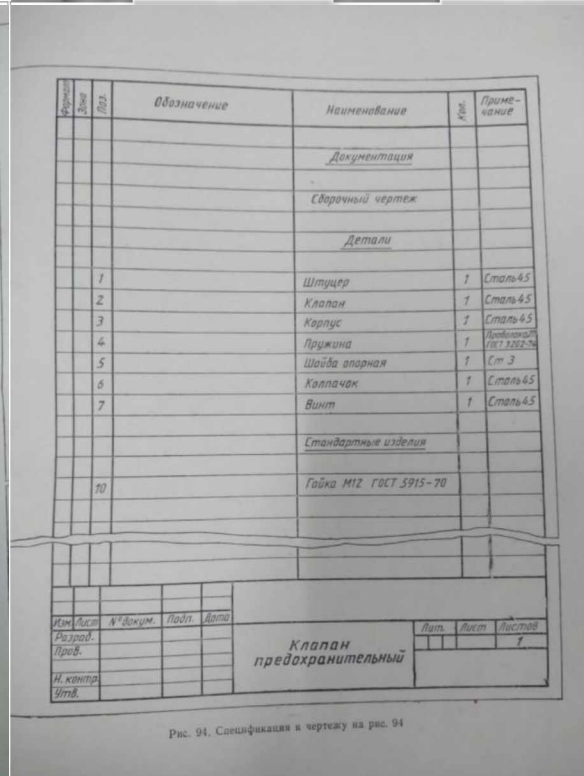 Формат Зона Поз. Обозначение Наименование Кол. Приме-
чание
Документация
Сборочный чертеж
Детали
1 Штуцер 1 Сталь45
2 Клапан 1 Сталь45
3 Корпус 1 Сталь45
4 Пружина 1 Проволока
ГОСТ 9202-74
5 Шайба опорная 1 Ст 3
6 Колпачок 1 Сталь45
7 Винт 1 Сталь45
Стандартные изделия
10 Гайка М12 ГОСТ 5915-70
Изм. Лист № докум. Подп. Дата
Разраб.
Пров.
Н. контр.
Утв.
Клапан
предохранительный
Лит. Лист Листов
1
Рис. 94. Спецификация к чертежу на рис. 94